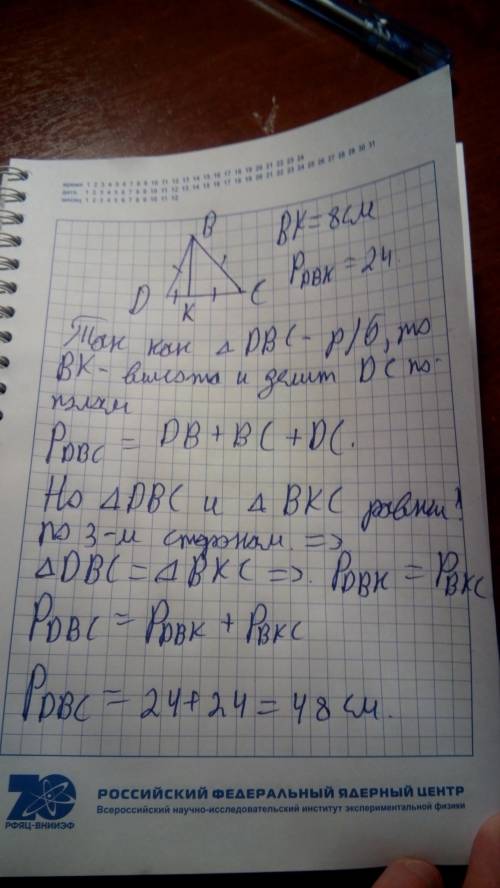 время 1 2 3 4 5 6 7 8 9 10 11 12 13 14 15 16 17 18 19 20 21 22 23 24
дата 1 2 3 4 5 6 7 8 9 10 11 12 13 14 15 16 17 18 19 20 21 22 23 24 25 26 27 28 29 30 31
месяц 1 2 3 4 5 6 7 8 9 10 11 12
B
D
K
C
BK = 8 см
P DBK = 24
Так как △ DBC - р/б, то
BK - высота и делит DC по-
полам
P DBC = DB + BC + DC.
Но △DBC и △ BKC равны
по 3-м сторонам =>
△DBC = △BKC => P DBK = P BKC
P DBC = P DBK + P BKC
P DBC = 24 + 24 = 48 см.
70
РФЯЦ-ВНИИЭФ
РОССИЙСКИЙ ФЕДЕРАЛЬНЫЙ ЯДЕРНЫЙ ЦЕНТР
Всероссийский научно-исследовательский институт экспериментальной физики